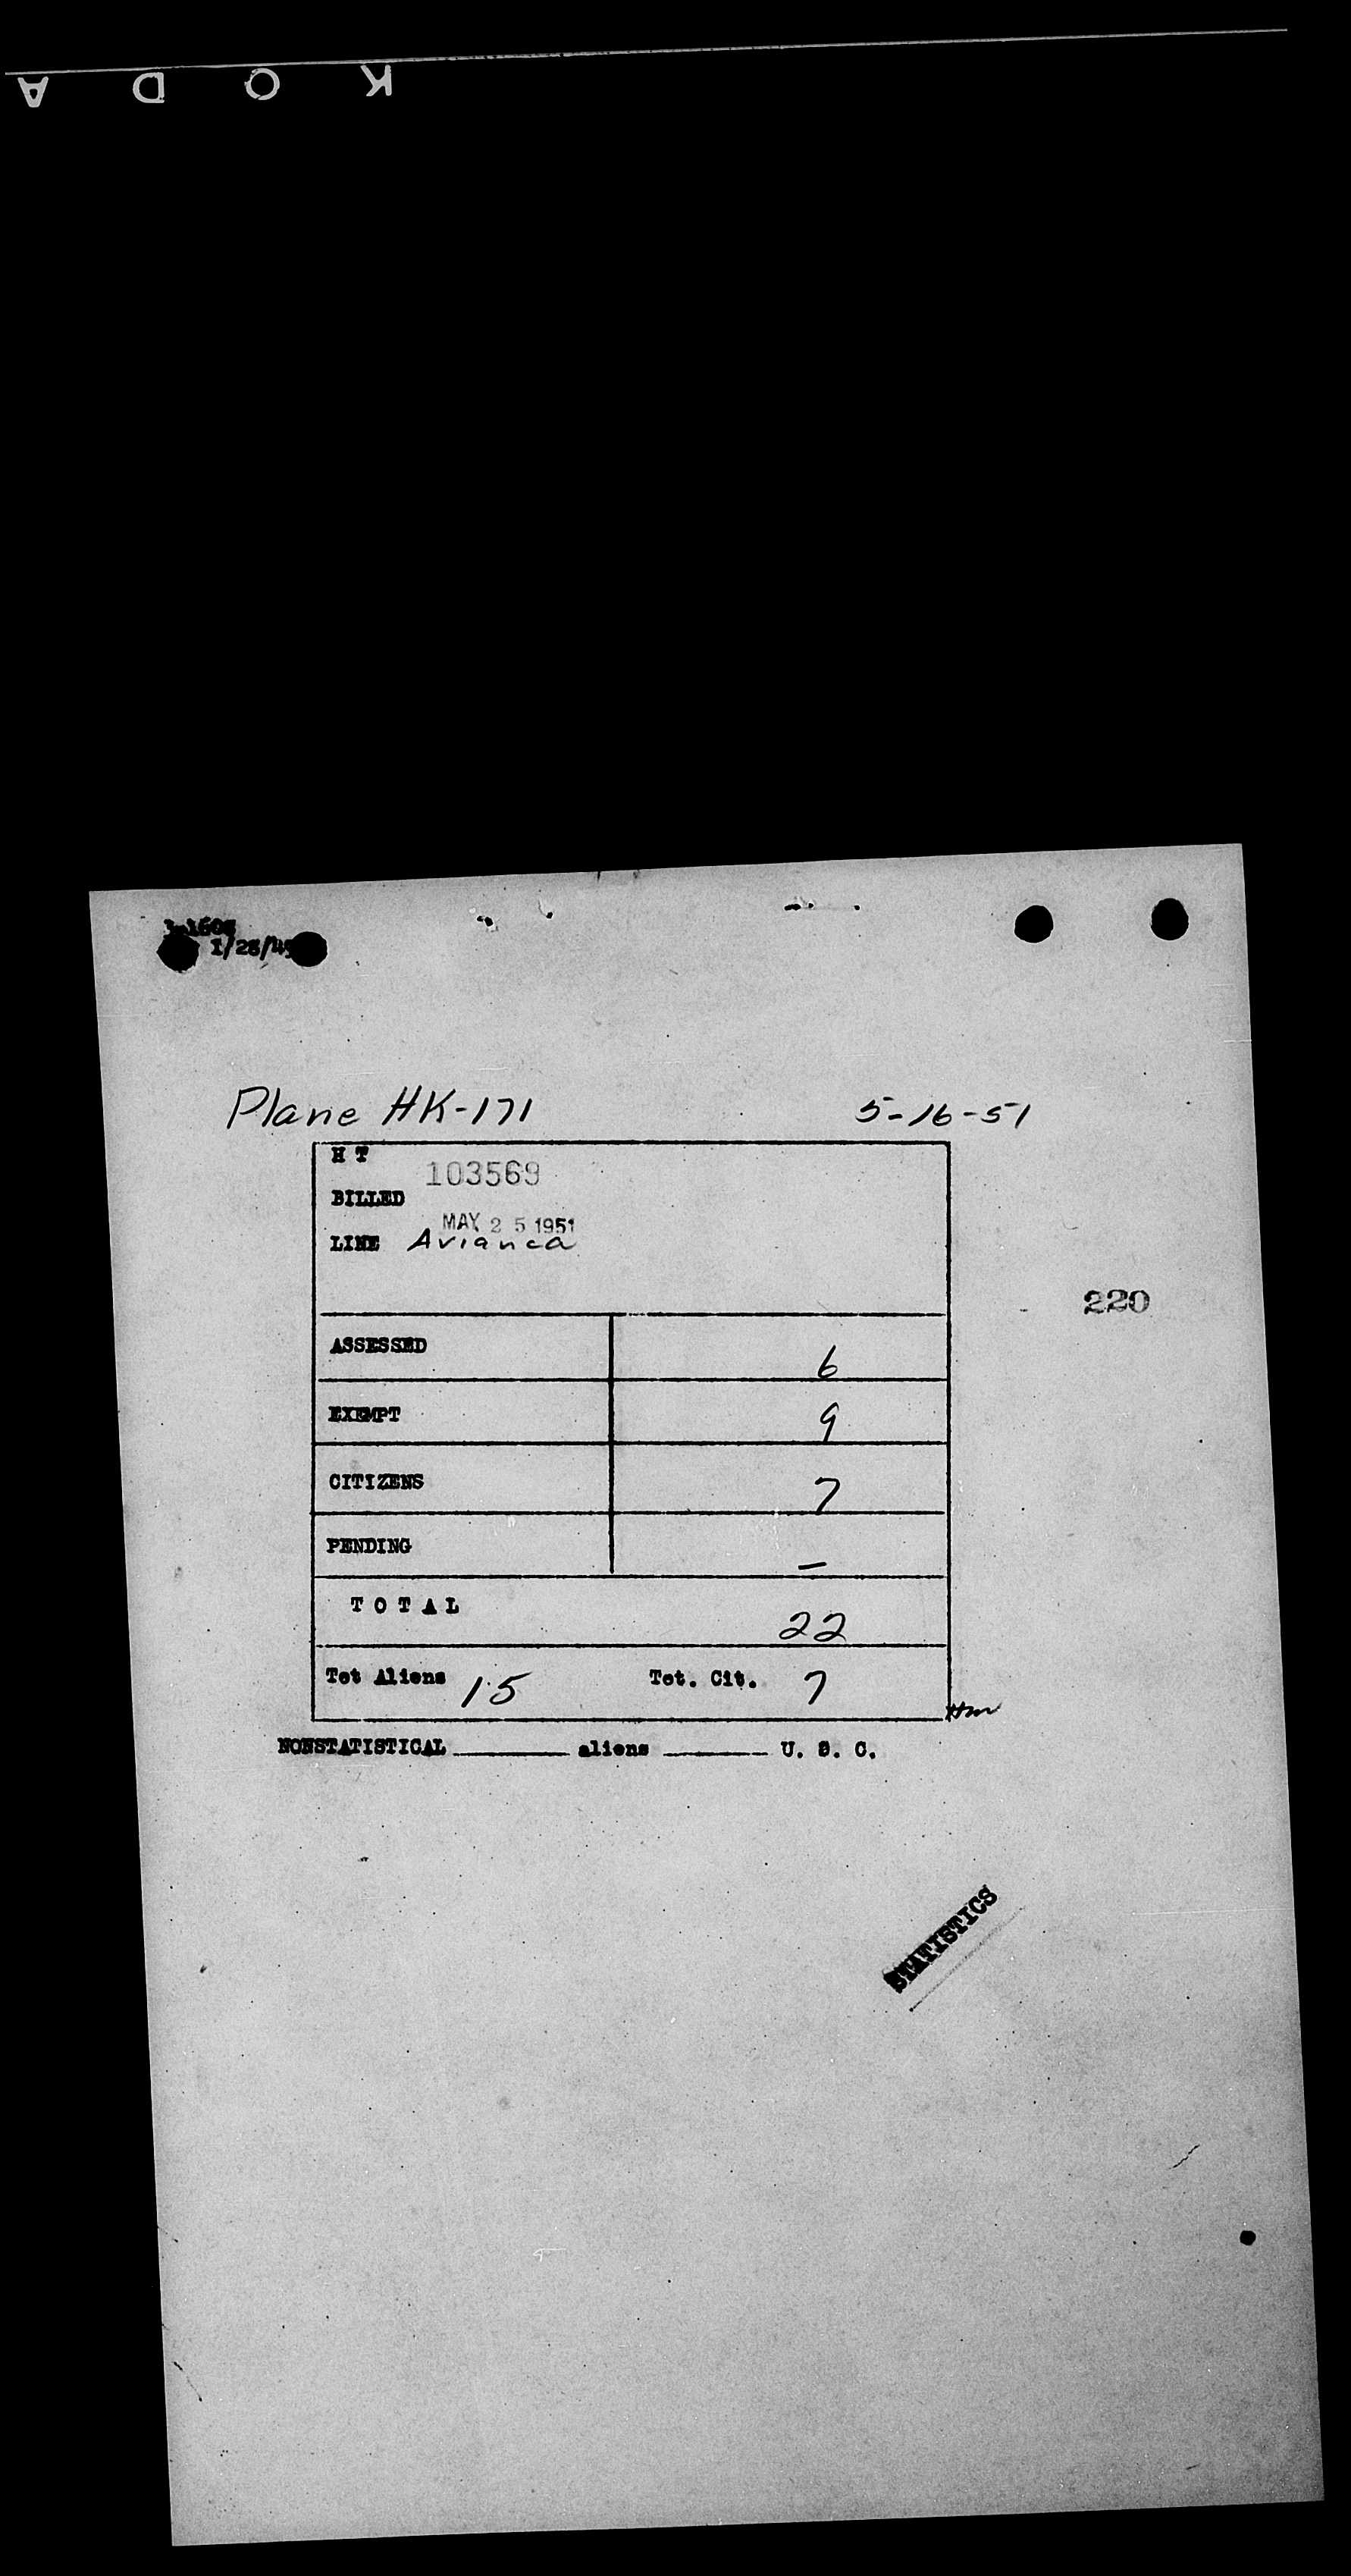 KODA
1/28/49
Plane HK-171 5-16-51
H T 103569
BILLED
MAY 25 1951
LINE Avianca
220
ASSESSED 6
EXEMPT 9
CITIZENS 7
PENDING –
TOTAL 22
Tot Aliens 15 Tot. Cit. 7
NONSTATISTICAL ______ aliens ______ U. S. C.
STATISTICS